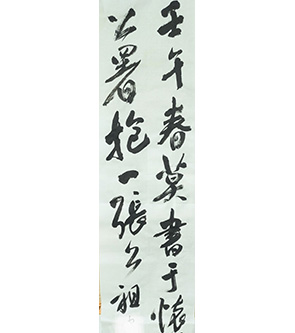 壬午春莫書于懷
公署抱一張公祖